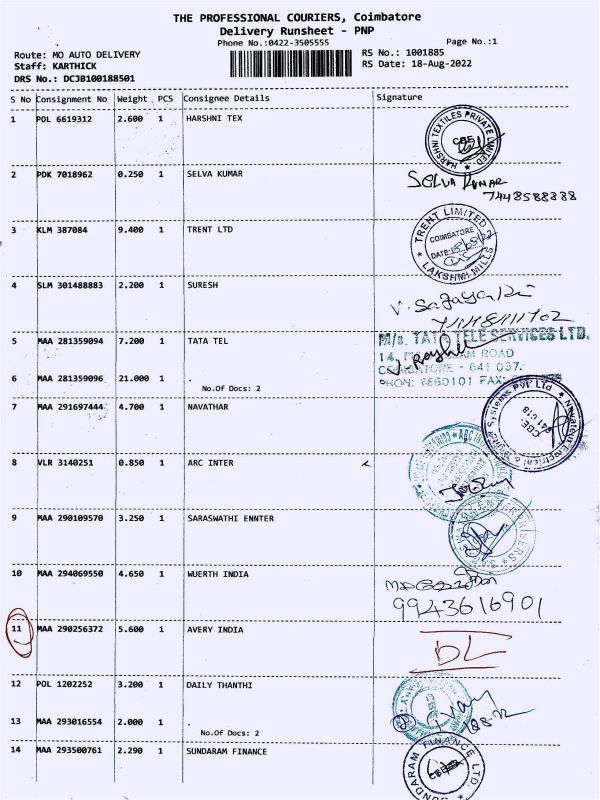 THE PROFESSIONAL COURIERS, Coimbatore
Delivery Runsheet - PNP
Phone No.:0422-3505555
Page No.:1
Route: MO AUTO DELIVERY
RS No.: 1001885
Staff: KARTHICK
RS Date: 18-Aug-2022
DRS No.: DCJB100188501
S No Consignment No Weight PCS Consignee Details Signature
1 POL 6619312 2.600 1 HARSHNI TEX
HARSHNI TEXTILES PRIVATE LIMITED
CBE
2 PDK 7018962 0.250 1 SELVA KUMAR
SELVA KUMAR
7448588888
3 KLM 387084 9.400 1 TRENT LTD
TRENT LIMITED
COIMBATORE
DATE:
LAKSHMI MILLS
4 SLM 301488883 2.200 1 SURESH
5 MAA 281359094 7.200 1 TATA TEL
M/s. TATA TELE SERVICES LTD.
14, ROAD
COIMBATORE - 641 037.
PHON: 6660101 FAX:
6 MAA 281359096 21.000 1 .
No.Of Docs: 2
7 MAA 291697444 4.700 1 NAVATHAR
Systems Pvt Ltd
CBE.
641 018
8 VLR 3140251 0.850 1 ARC INTER
ARC
9 MAA 290109570 3.250 1 SARASWATHI ENNTER
10 MAA 294069550 4.650 1 WUERTH INDIA
9943616901
11 MAA 290256372 5.600 1 AVERY INDIA
DL
12 POL 1202252 3.200 1 DAILY THANTHI
13 MAA 293016554 2.000 1 .
No.Of Docs: 2
14 MAA 293500761 2.290 1 SUNDARAM FINANCE
SUNDARAM FINANCE LTD.